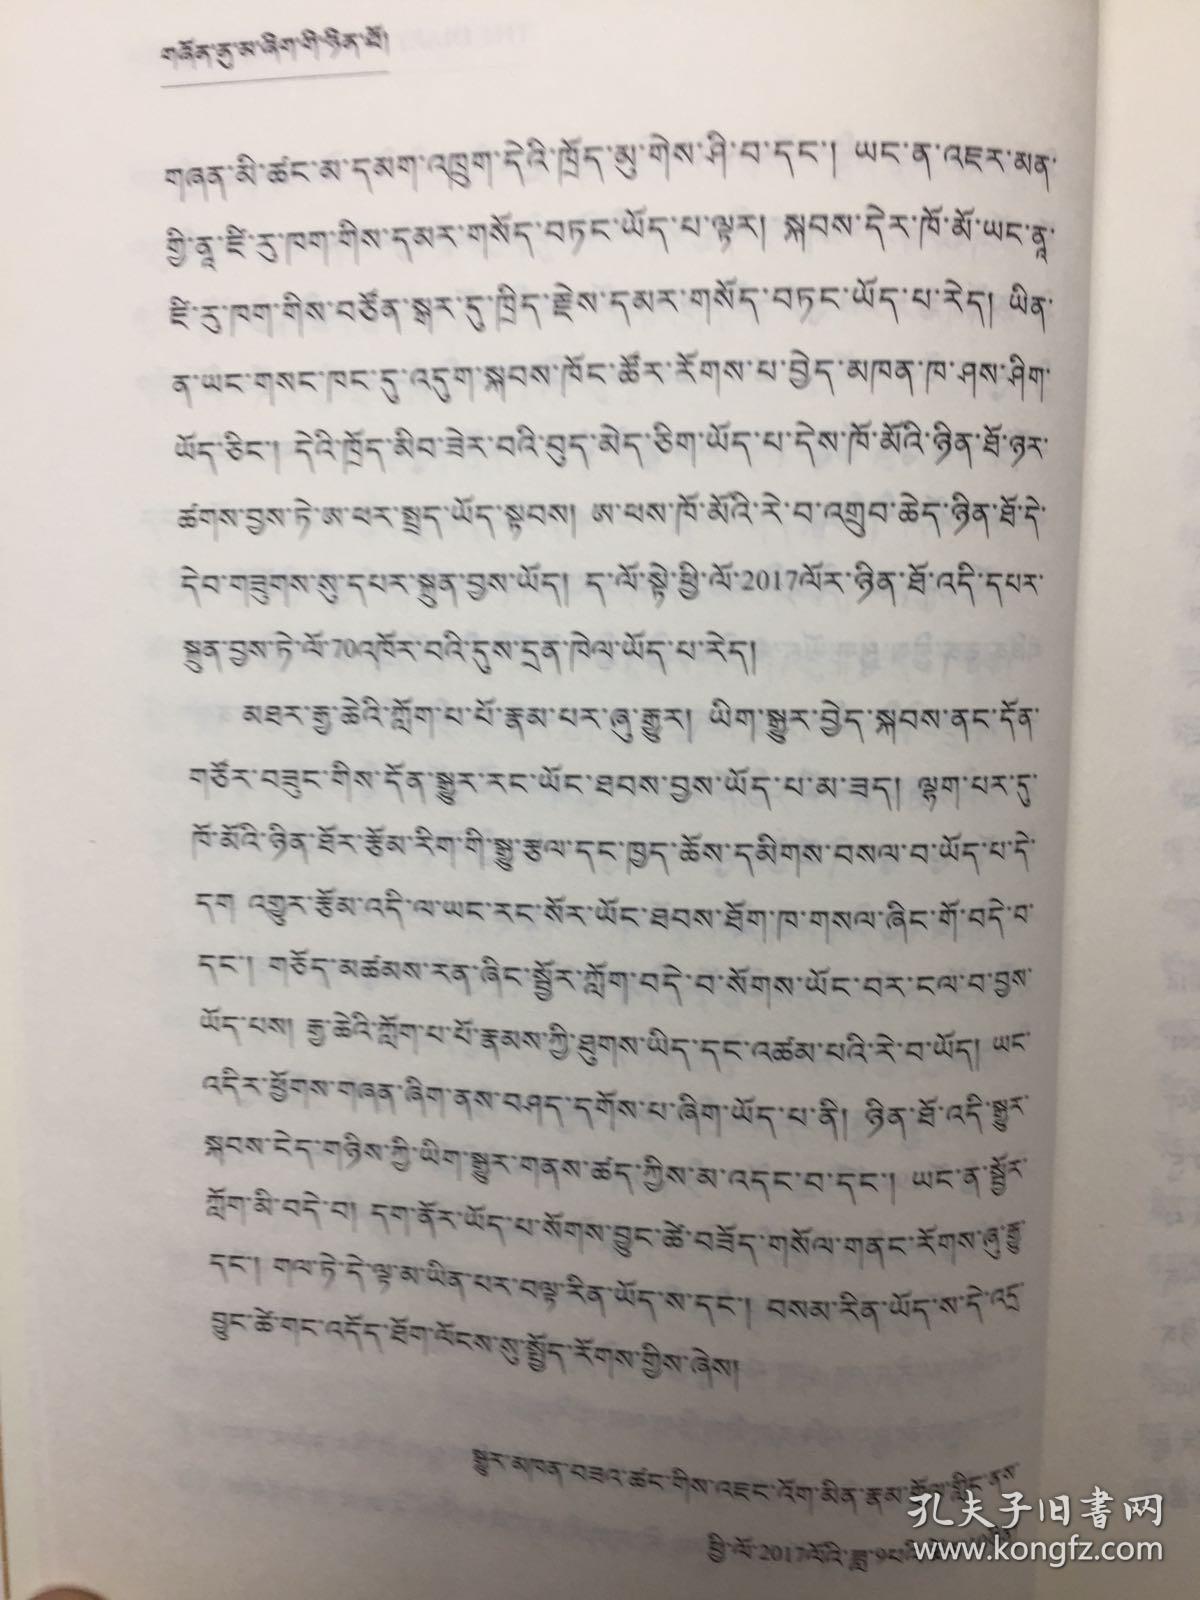 གཞོན་ནུ་མ་ཞིག་གི་ཉིན་ཐོ།
གཞན་མི་ཚང་མ་དམག་འཁྲུག་དེའི་ཁྲོད་མུ་གེས་ཤི་བ་དང་། ཡང་ན་འཇར་མན་
གྱི་ནཱ་ཛི་རུ་ཁག་གིས་དམར་གསོད་བཏང་ཡོད་པ་ལྟར། སྐབས་དེར་ཁོ་མོ་ཡང་ནཱ་
ཛི་རུ་ཁག་གིས་བཙོན་སྒར་དུ་ཁྲིད་རྗེས་དམར་གསོད་བཏང་ཡོད་པ་རེད། ཡིན་
ན་ཡང་གསང་ཁང་དུ་འདུག་སྐབས་ཁོང་ཚོར་རོགས་པ་བྱེད་མཁན་ཁ་ཤས་ཤིག་
ཡོད་ཅིང་། དེའི་ཁྲོད་མིབ་ཟེར་བའི་བུད་མེད་ཅིག་ཡོད་པ་དེས་ཁོ་མོའི་ཉིན་ཐོ་ཉར་
ཚགས་བྱས་ཏེ་ཨ་ཕར་སྤྲད་ཡོད་སྟབས། ཨ་ཕས་ཁོ་མོའི་རེ་བ་འགྲུབ་ཆེད་ཉིན་ཐོ་དེ་
དེབ་གཟུགས་སུ་དཔར་སྐྲུན་བྱས་ཡོད། ད་ལོ་སྟེ་ཕྱི་ལོ་2017ལོར་ཉིན་ཐོ་འདི་དཔར་
སྐྲུན་བྱས་ཏེ་ལོ་70འཁོར་བའི་དུས་དྲན་ཁེལ་ཡོད་པ་རེད།
མཐར་རྒྱ་ཆེའི་ཀློག་པ་པོ་རྣམ་པར་ཞུ་རྒྱུར། ཡིག་སྒྱུར་བྱེད་སྐབས་ནང་དོན་
གཙོར་བཟུང་གིས་དོན་སྒྱུར་རང་ཡོང་ཐབས་བྱས་ཡོད་པ་མ་ཟད། ལྷག་པར་དུ་
ཁོ་མོའི་ཉིན་ཐོར་རྩོམ་རིག་གི་སྒྱུ་རྩལ་དང་ཁྱད་ཆོས་དམིགས་བསལ་བ་ཡོད་པ་དེ་
དག འགྱུར་རྩོམ་འདི་ལ་ཡང་རང་སོར་ཡོང་ཐབས་ཐོག་ཁ་གསལ་ཞིང་གོ་བདེ་བ་
དང་། གཅོད་མཚམས་རན་ཞིང་སྦྱོར་ཀློག་བདེ་བ་སོགས་ཡོང་བར་ངལ་བ་བྱས་
ཡོད་པས། རྒྱ་ཆེའི་ཀློག་པ་པོ་རྣམས་ཀྱི་ཐུགས་ཡིད་དང་འཚམ་པའི་རེ་བ་ཡོད། ཡང་
འདིར་ཕྱོགས་གཞན་ཞིག་ནས་བཤད་དགོས་པ་ཞིག་ཡོད་པ་ནི། ཉིན་ཐོ་འདི་སྒྱུར་
སྐབས་ངེད་གཉིས་ཀྱི་ཡིག་སྒྱུར་གནས་ཚད་ཀྱིས་མ་འདང་བ་དང་། ཡང་ན་སྦྱོར་
ཀློག་མི་བདེ་བ། དག་ནོར་ཡོད་པ་སོགས་བྱུང་ཚེ་བཟོད་གསོལ་གནང་རོགས་ཞུ་རྒྱུ་
དང་། གལ་ཏེ་དེ་ལྟ་མ་ཡིན་པར་བལྟ་རིན་ཡོད་ས་དང་། བསམ་རིན་ཡོད་ས་དེ་འདྲ་
བྱུང་ཚེ་གང་འདོད་ཐོག་ལོངས་སུ་སྤྱོད་རོགས་གྱིས་ཞེས།
སྒྱུར་མཁན་བཟའ་ཚང་གིས་འཇང་འོག་མིན་རྣམ་གྲོལ་གླིང་ནས་
ཕྱི་ལོ་2017ལོའི་ཟླ་9པའི་
孔夫子旧书网
www.kongfz.com